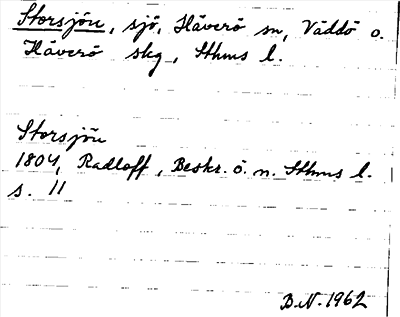 Storsjön, sjö, Häverö sn, Väddö o.
Häverö skg, Sthms l.
Storsjön
1804, Radloff, Beskr. ö. n. Sthms l.
s. 11
B.N. 1962